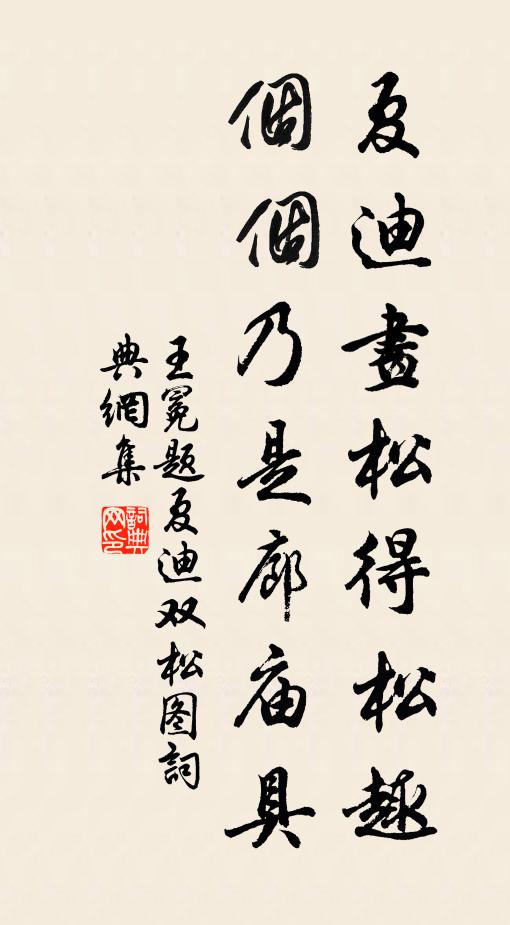 夏迪畫松得松趣
個個乃是廊庙具
王冕题夏迪双松图詞
典網集
詞典网印